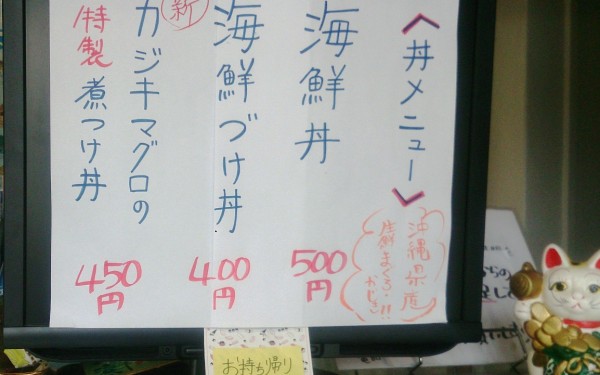 〈丼メニュー〉
沖縄県産
生まぐろ・
かじき!!
海鮮丼
500円
新
海鮮づけ丼
400円
カジキマグロの
特製煮つけ丼
450円
お持ち帰り